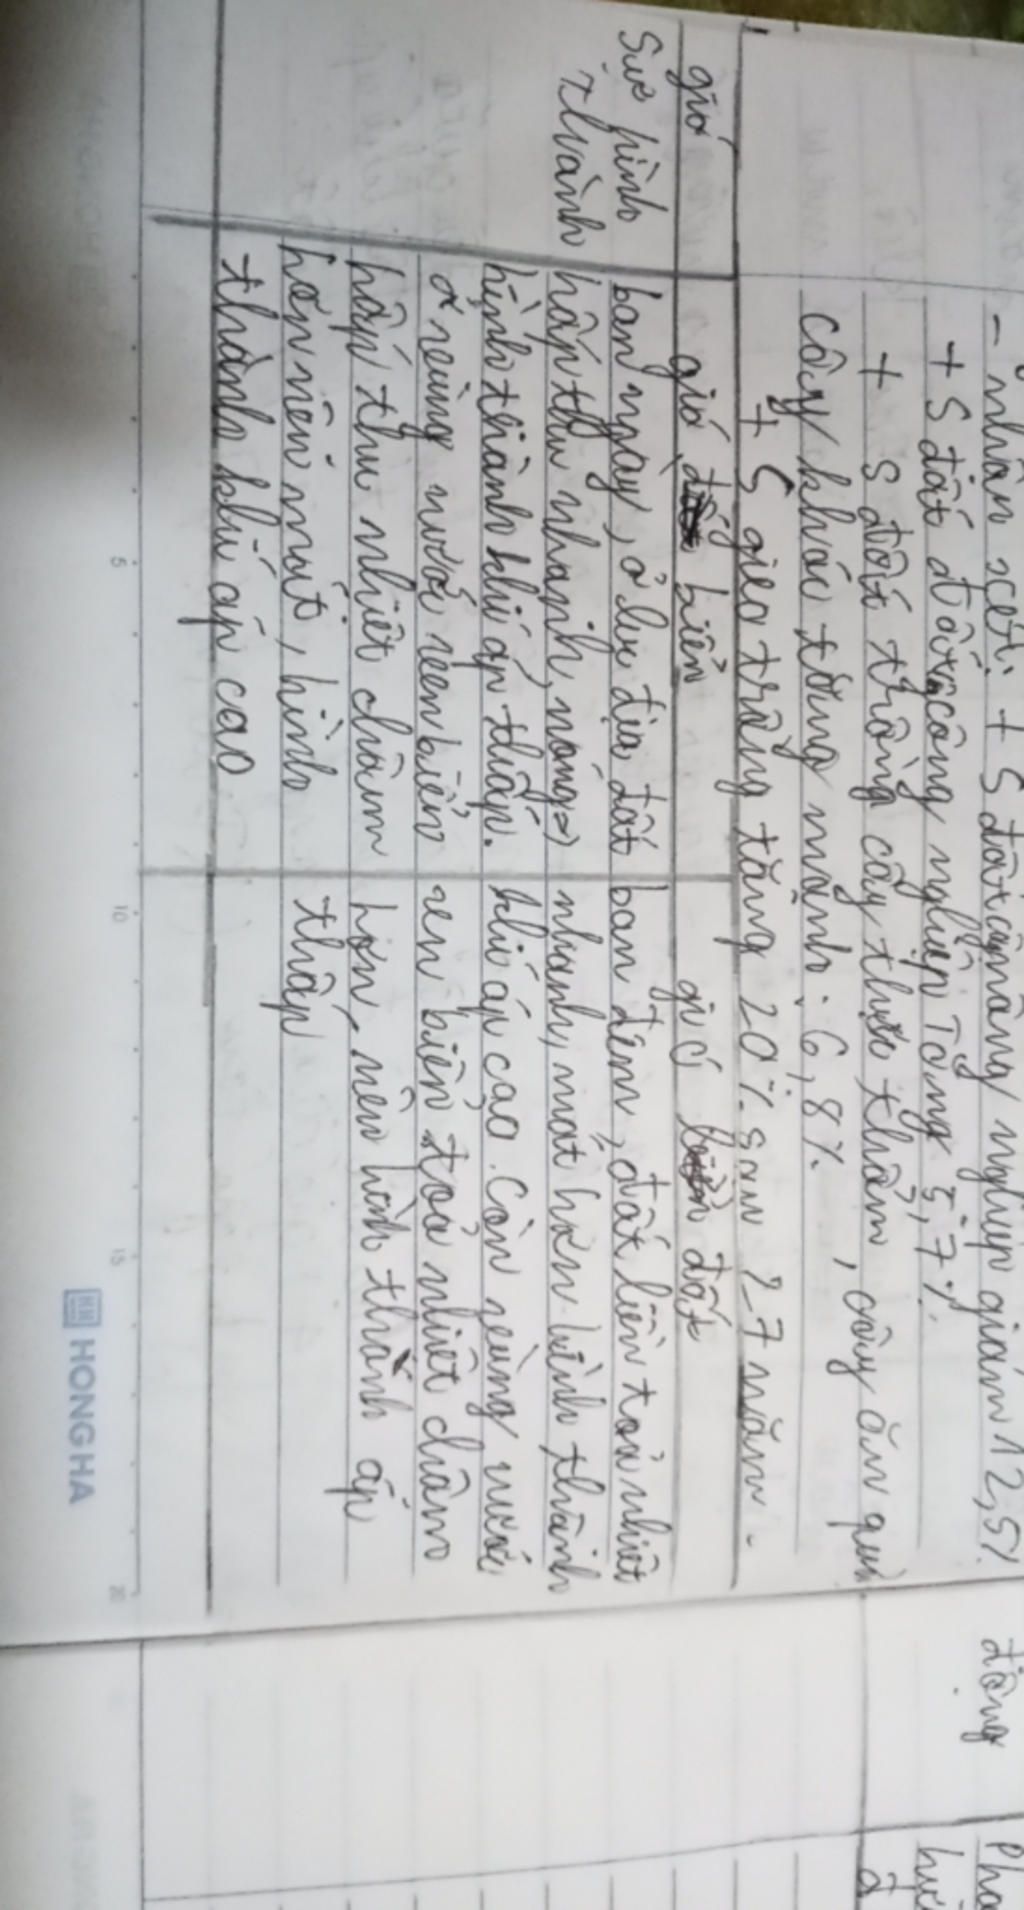 - nhân xét: + S đất nông nghiệp giảm 12,5%
+ S đất công nghiệp Tăng 5,7%.
+ S đất trồng cây thực thẩm, cây ăn quả
cây khác tăng mạnh: 6,8%.
+ S gieo trồng tăng 20% sau 27 năm.
gió
gió biển
gió đất
Sực hình
thành
ban ngay, ở lục địa đất
hấp thu nhanh, nóng =>
hình thành khí áp thấp.
ở vùng nước ven biển
hấp thu nhiệt chậm
hơn nên mát, hình
thành khí áp cao
ban đêm, đất liền toả nhiệt
nhanh, mát hơn hình thành
khí áp cao. Còn vùng nước
ven biển toả nhiệt chậm
hơn, nên hình thành áp
thấp
5 10 15 20
HONG HA
động